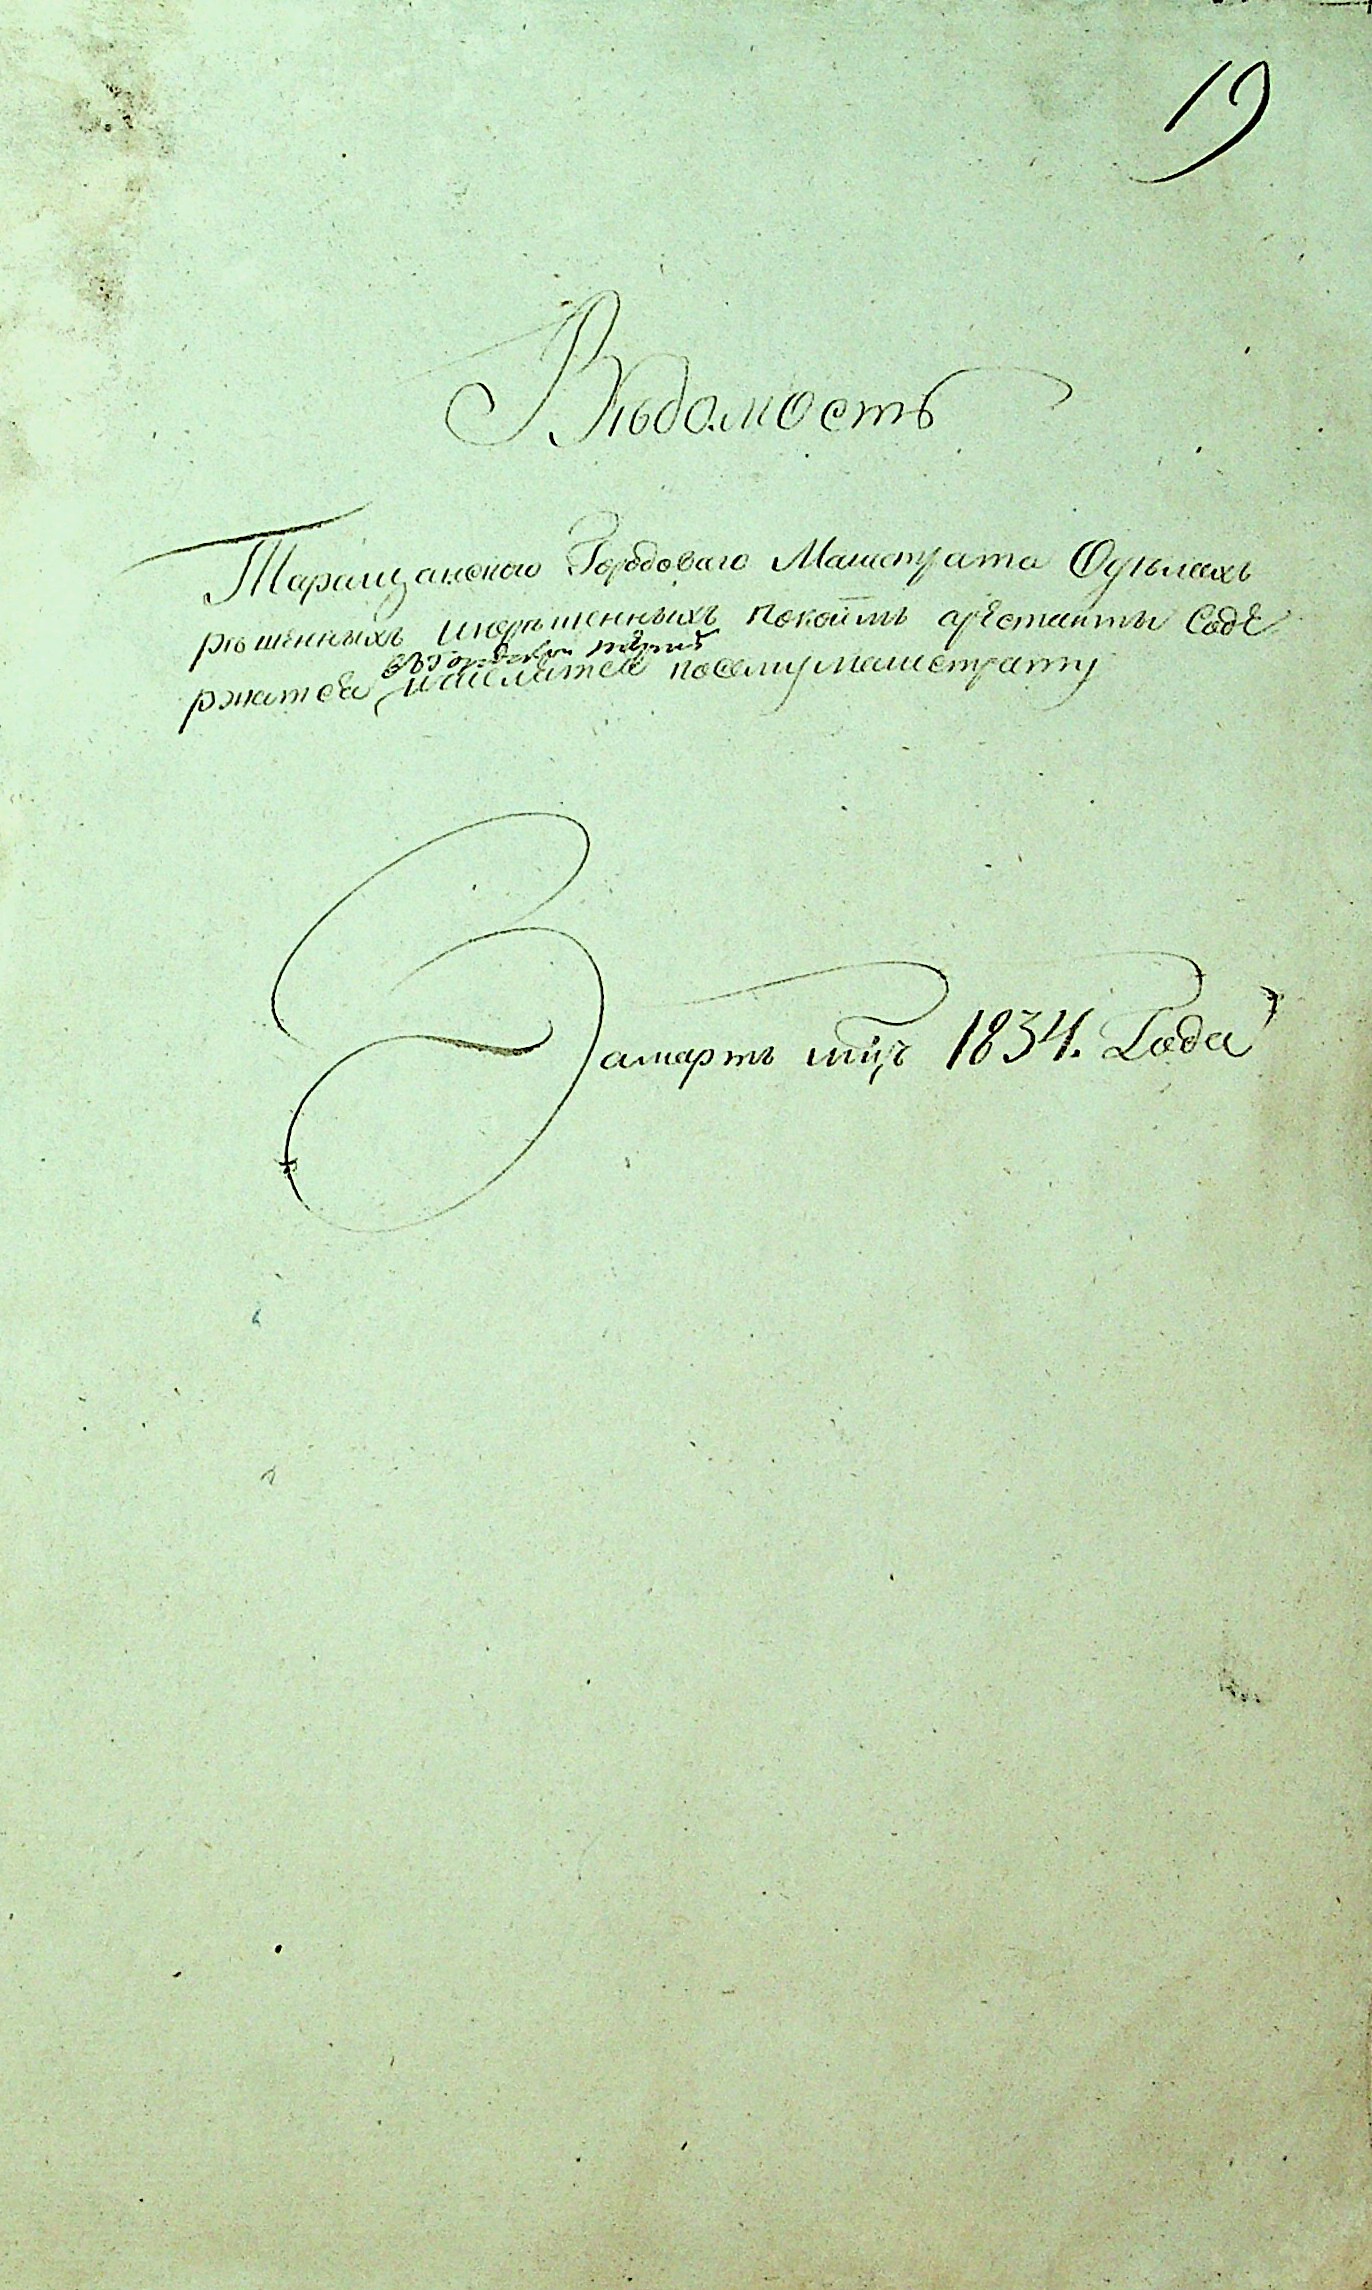 19
Вѣдомость
Таращанскаго Городоваго Магистрата Одѣлахъ
рѣшенныхъ инерѣшенныхъ покоимъ арестанты Соде
въ Городской тюрмѣ
ржатся ичислятся посему магистрату
Замартъ мцъ 1834. Года